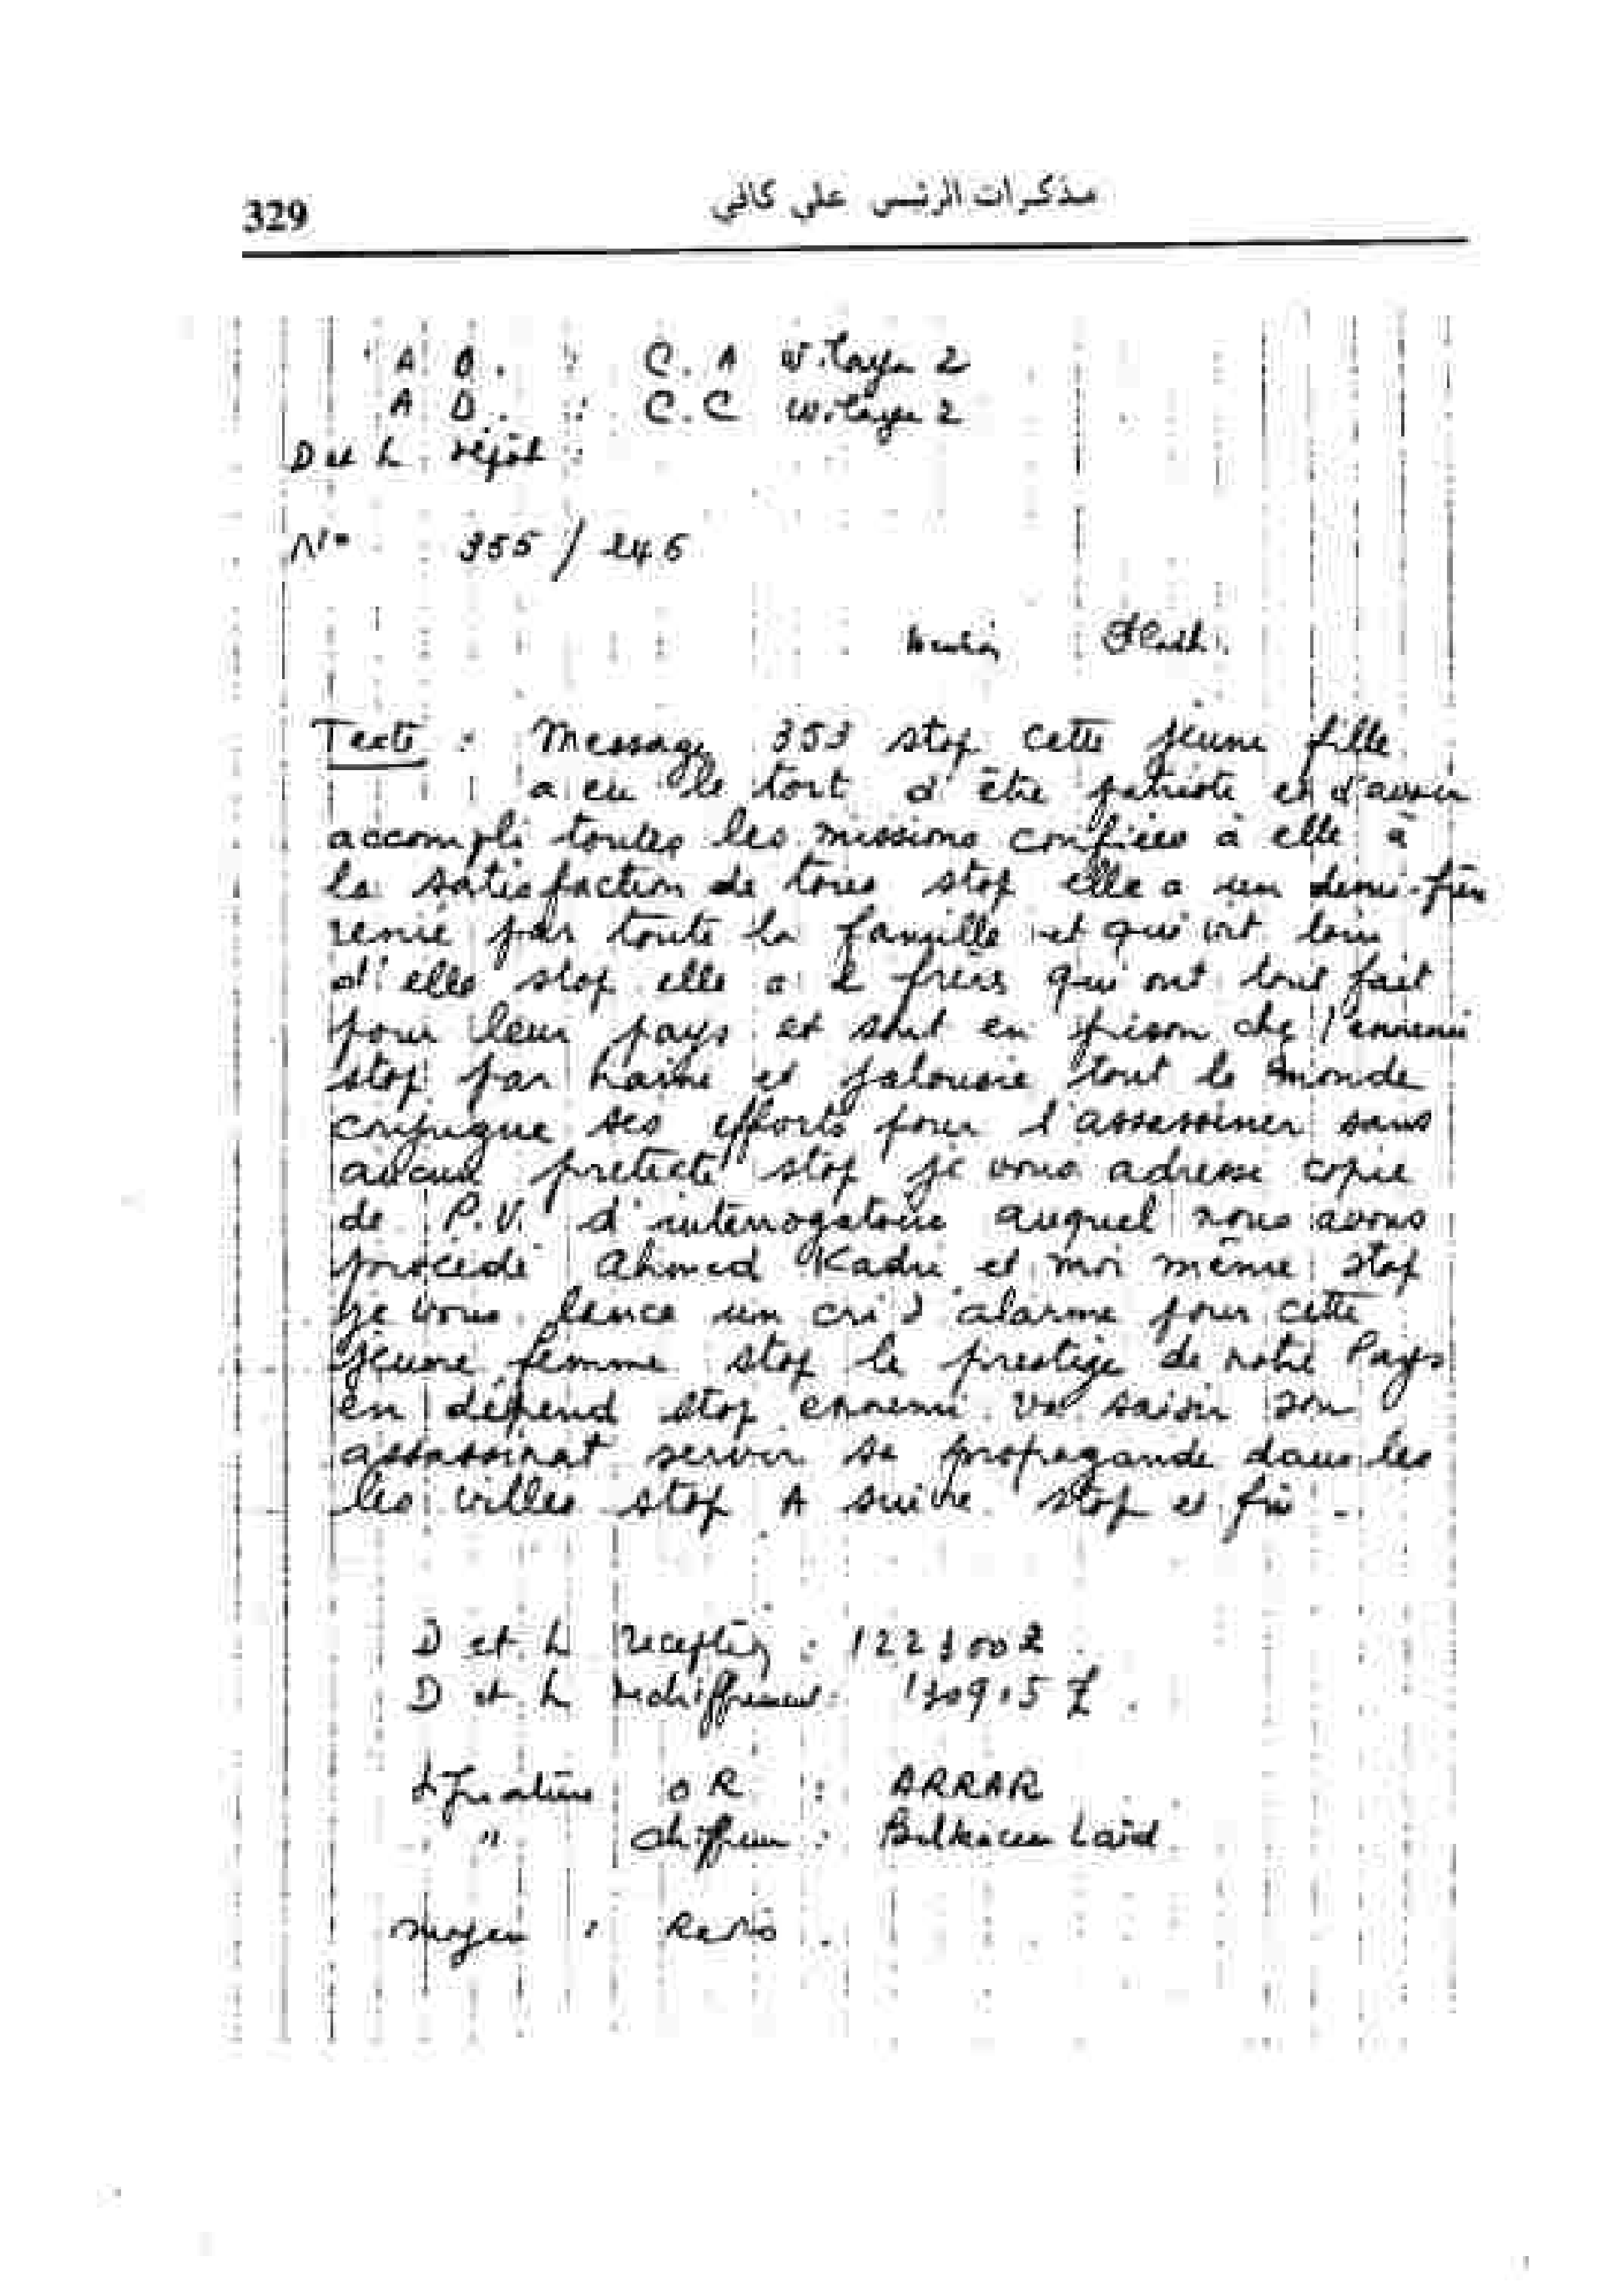 329
مذكرات الرئيس علي كافي
A O. : C. A Wilaya 2
A D. : C.C Wilaya 2
D et h dépôt :
N° 355 / 246
Texte : Message 353 stop cette jeune fille
a eu le tort d'être patriote et d'avoir
accompli toutes les missions confiées à elle à
la satisfaction de tous stop elle a un demi-frère
renié par toute la famille et qui vit loin
d'elle stop elle a 2 frères qui ont tout fait
pour leur pays et sont en prison chez l'ennemi
stop par haine et jalousie tout le monde
conjugue ses efforts pour l'assassiner sans
aucun pretecte stop je vous adresse copie
de P.V. d'interrogatoire auquel nous avons
procédé Ahmed Kadri et moi même stop
je vous lance un cri d'alarme pour cette
jeune femme stop le prestige de notre Pays
en dépend stop ennemi va saisir son
assassinat servir sa propagande dans les
les villes stop A suivre stop et fin.
D et h reception : 122300Z
D et h déchiffrement :
Signature OR : ARRAR
" chiffreur : Belkacem Laïd
moyen : Radio.